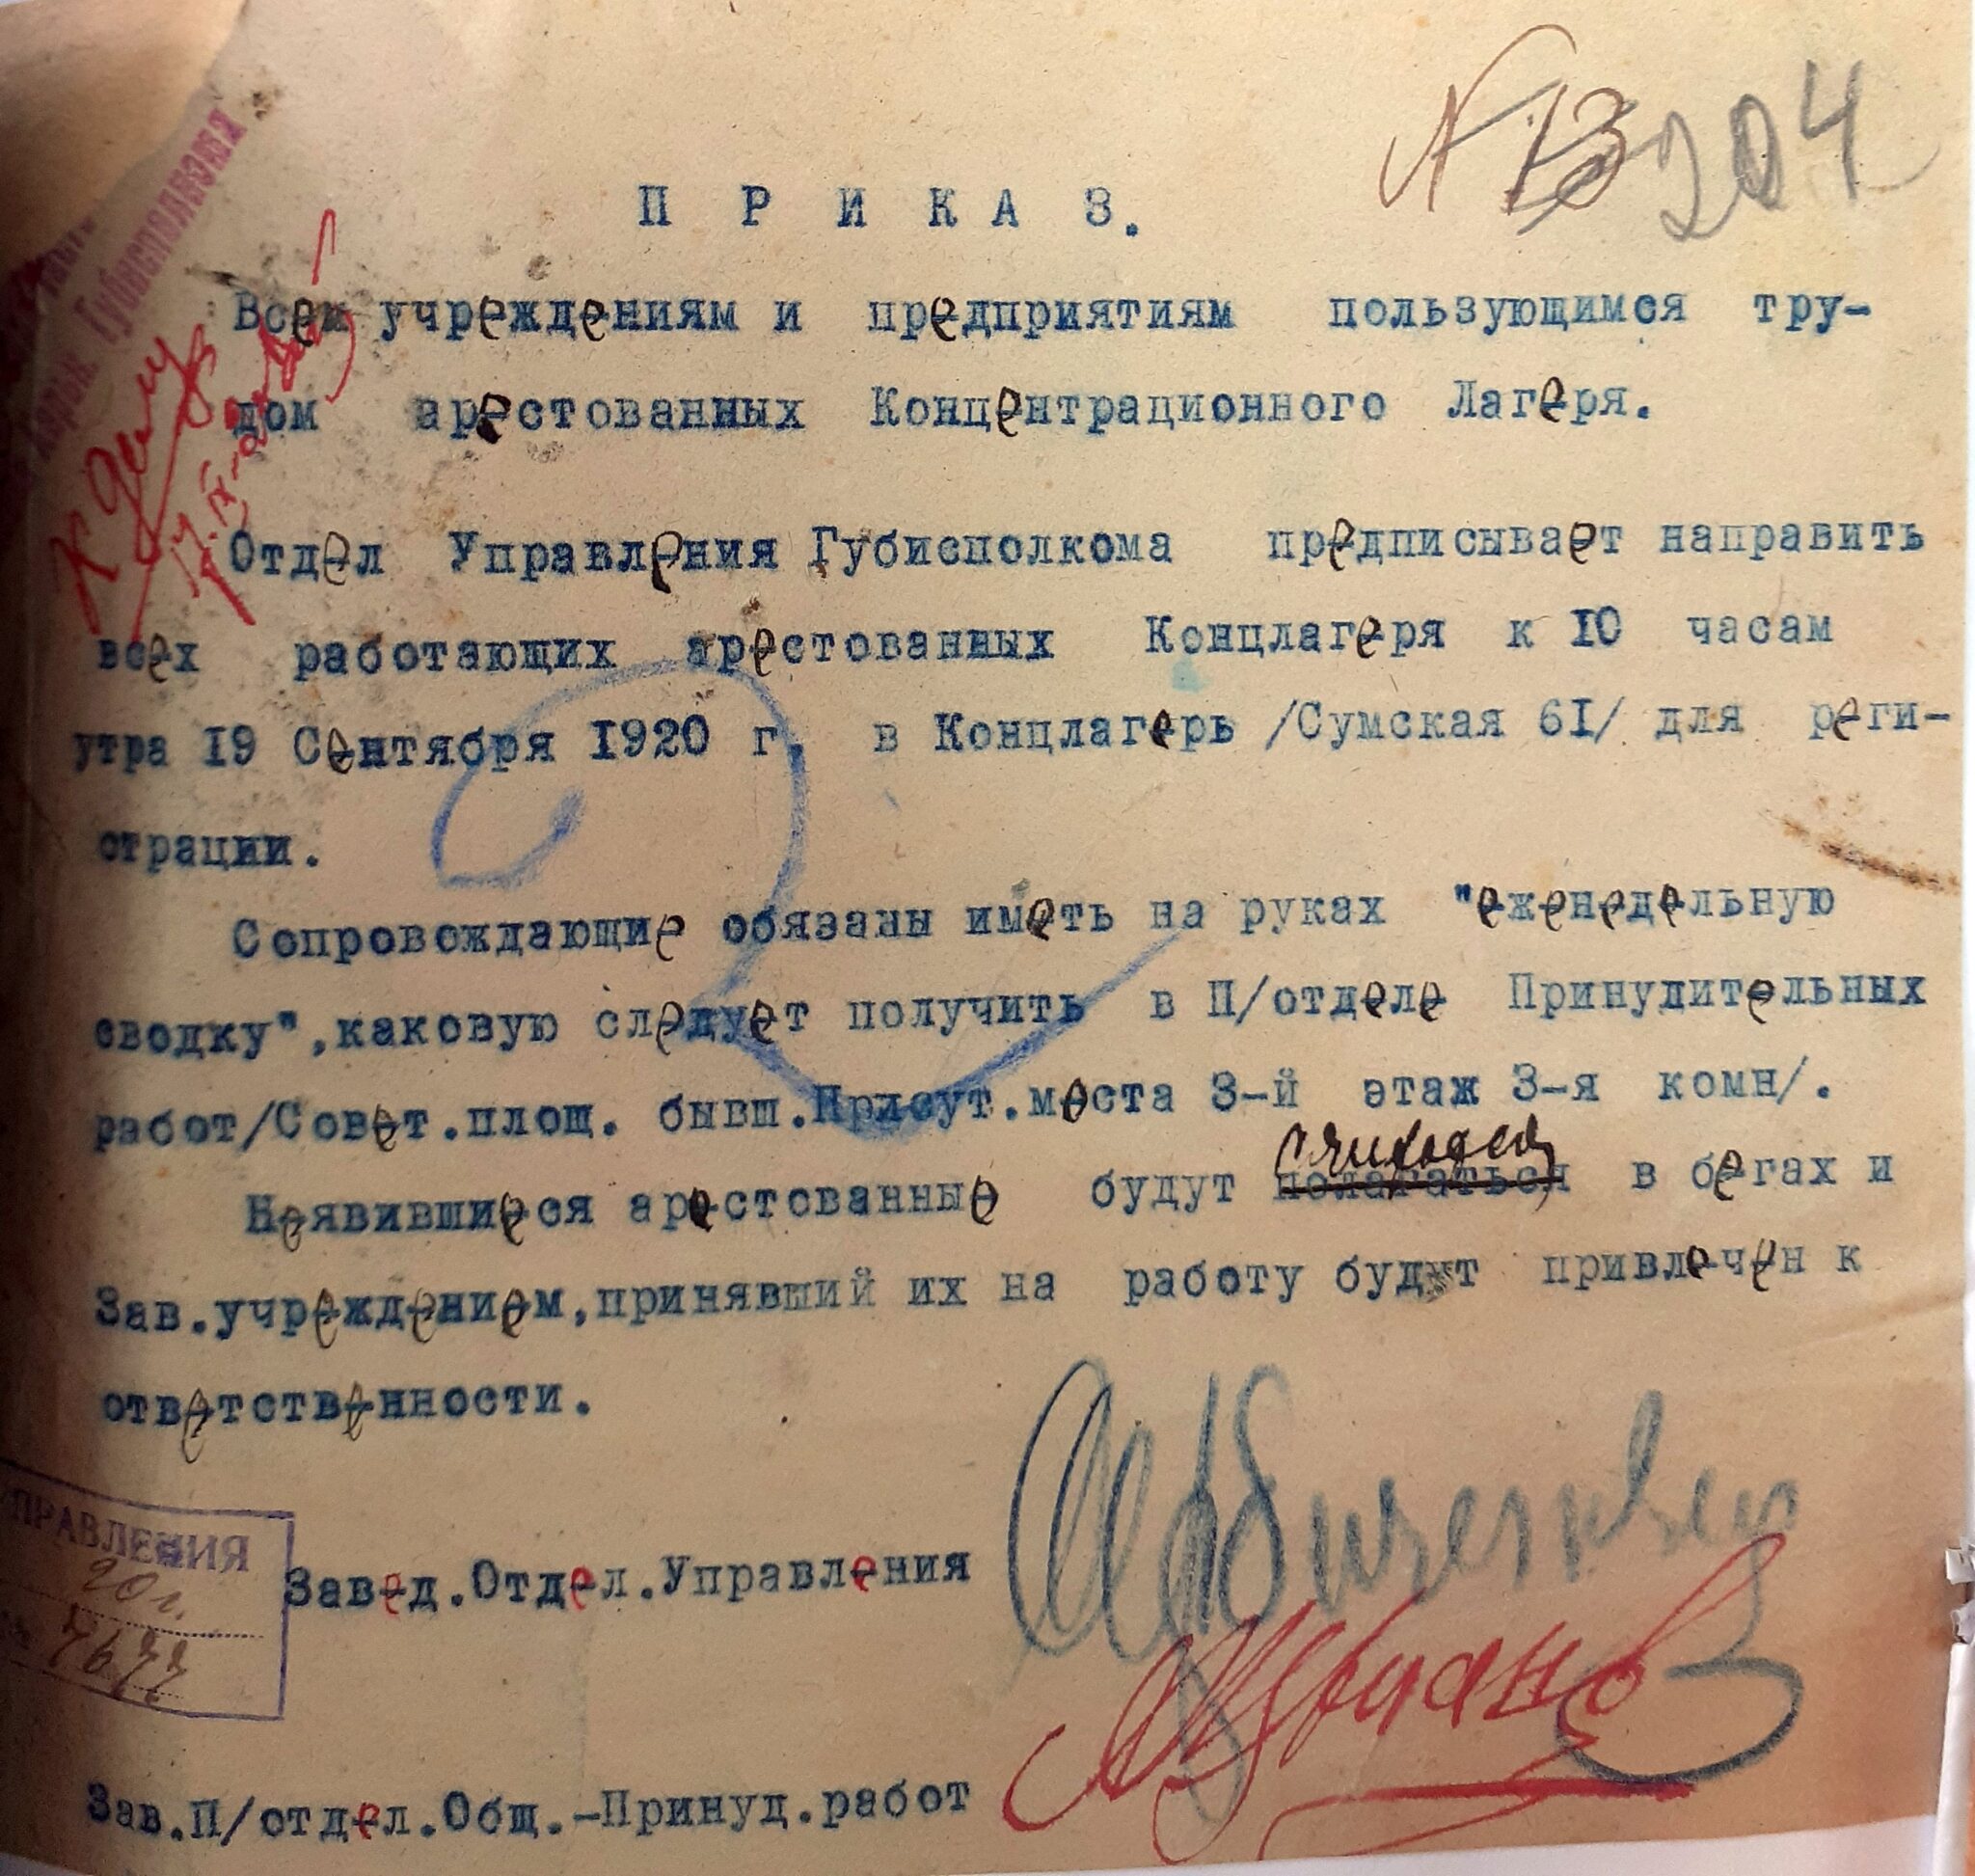 № 13 204
П Р И К А З.
Губисполкома
Всем учреждениям и предприятиям пользующимся тру-
дом арестованных Концентрационного Лагеря.
К делу
Отдел Управления Губисполкома предписывает направить
всех работающих арестованных Концлагеря к IO часам
утра I9 Сентября I920 г. в Концлагерь /Сумская 6I/ для реги-
страции.
Сопровождающие обязаны иметь на руках "еженедельную
сводку",каковую следует получить в П/отделе Принудительных
работ/Совет.площ. бывш.Присут.места 3-й этаж 3-я комн/.
считаться
Неявившиеся арестованные будут полагаться в бегах и
Зав.учреждением,принявший их на работу будет привлечен к
ответственности.
УПРАВЛЕНИЯ
20 г.
7677
Завед.Отдел.Управления
Зав.П/отдел.Общ.-Принуд.работ